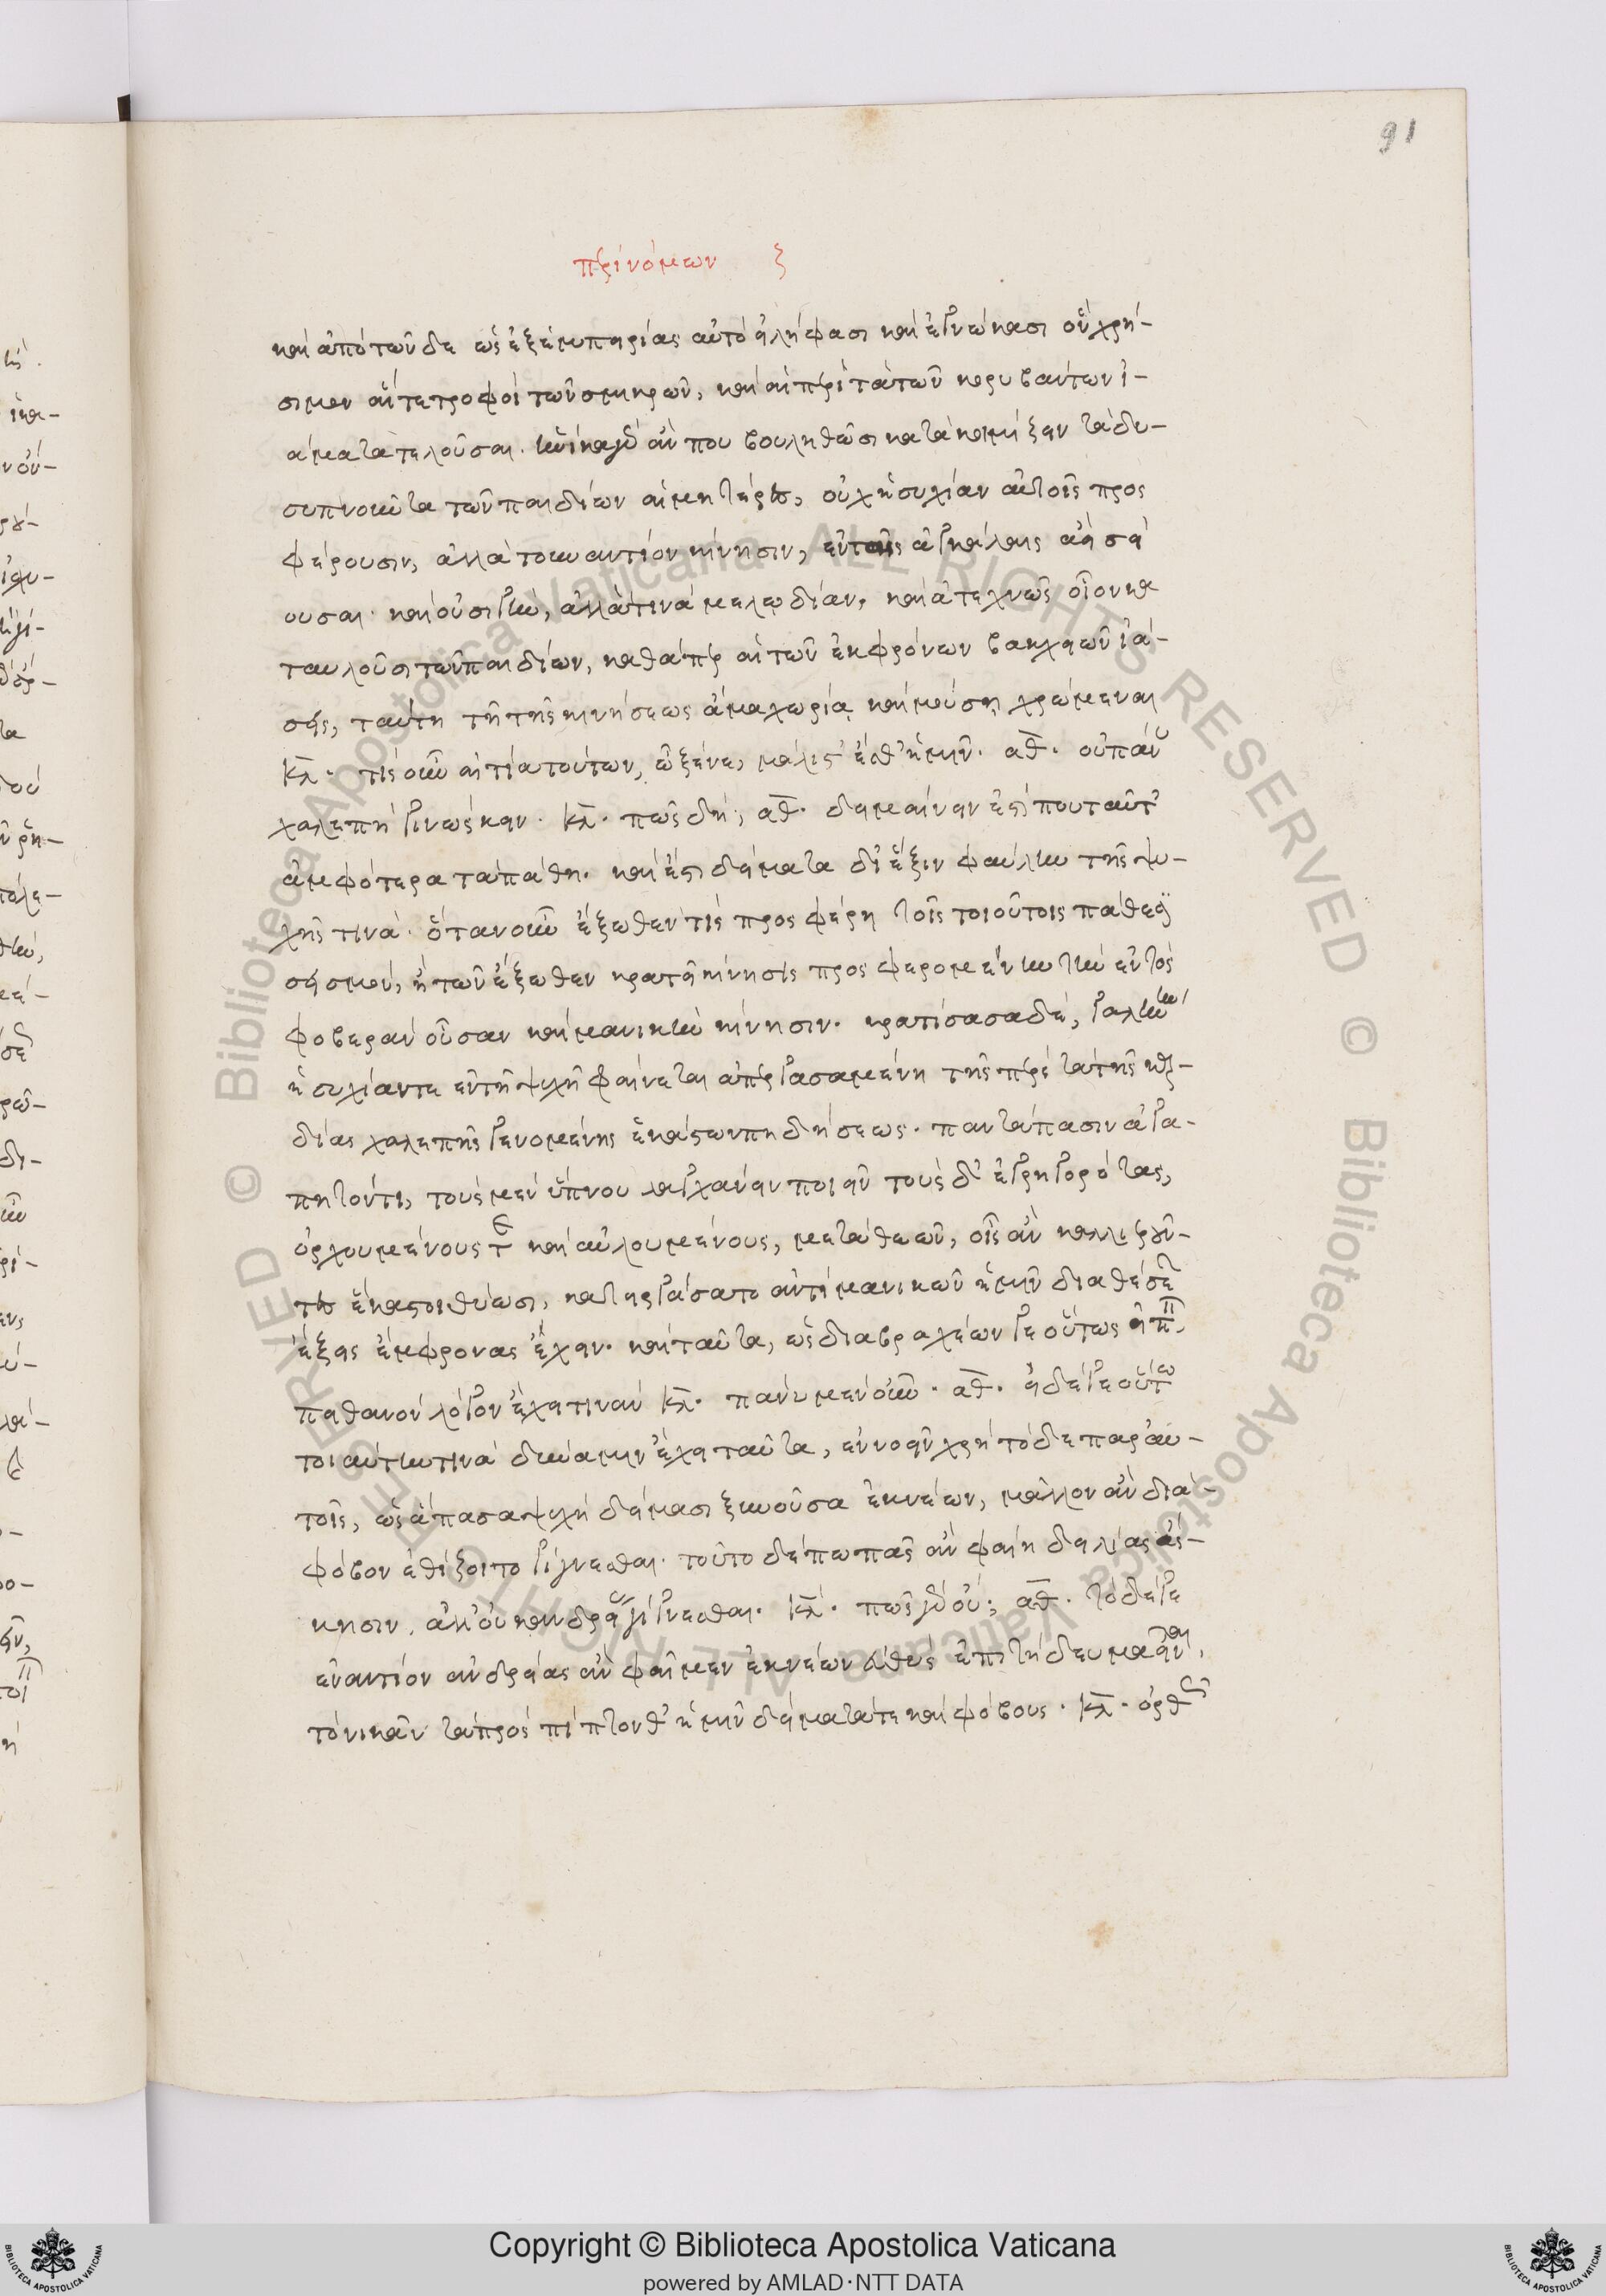 91
περὶ νόμων ζ
καὶ ἀπὸ τῶνδε ὡς ἐξ ἐμπειρίας αὐτὸ εἰλήφασι καὶ ἐγνώκασι ὂν χρή-
σιμον αἵ τε τροφοὶ τῶν σμικρῶν, καὶ αἱ περὶ τὰ τῶν κορυβάντων ἰ-
άματα τελοῦσαι. ἡνίκα γὰρ ἄν που βουληθῶσι κατακοιμίζειν τὰ δυ-
συπνοῦντα τῶν παιδίων αἱ μητέρες, οὐχ ἡσυχίαν αὐτοῖς προς
φέρουσιν, ἀλλὰ τοὐναντίον κίνησιν, ἐν ταῖς ἀγκάλαις ἀεὶ σεί
ουσαι. καὶ οὐ σιγὴν, ἀλλά τινα μελῳδίαν, καὶ ἀτεχνῶς οἷον κα
ταυλοῦσι τῶν παιδίων, καθάπερ αἱ τῶν ἐκφρόνων βακχειῶν ἰά-
σεις, ταύτῃ τῇ τῆς κινήσεως ἅμα χωρίᾳ καὶ μούσῃ χρώμεναι
κλ. τίς οὖν αἰτία τούτων, ὦ ξένε, μάλιστ' ἔσθ' ἡμῖν. αθ. οὐ πάνυ
χαλεπὴ γινώσκειν. κλ. πῶς δή; αθ. δειμαίνειν ἐστί που ταῦτ'
ἀμφότερα τὰ πάθη. καὶ ἔστι δείματα δι' ἕξιν φαύλην τῆς ψυ-
χῆς τινά. ὅταν οὖν ἔξωθέν τις προς φέρῃ τοῖς τοιούτοις πάθεσι
σεισμόν, ἡ τῶν ἔξωθεν κρατεῖ κίνησις προς φερομένη τὴν ἐντὸς
φοβερὰν οὖσαν καὶ μανικὴν κίνησιν. κρατίσασα δέ, γαλήνην
ἡσυχίαν τε ἐν τῇ ψυχῇ φαίνεται ἀπεργασαμένη τῆς περὶ τὰ τῆς καρ-
δίας χαλεπῆς γενομένης ἑκάστων πηδήσεως. παντάπασιν ἀγα-
πητόν τι, τοὺς μὲν ὕπνου λαγχάνειν ποιεῖν τοὺς δ' ἐγρηγορότας,
ὀρχουμένους τε καὶ αὐλουμένους, μετὰ θεῶν, οἷς ἂν καλλιεροῦν-
τες ἕκαστοι θύωσι, κατηργάσατο ἀντὶ μανικῶν ἡμῖν διαθέσεων
ἕξεις ἔμφρονας ἔχειν. καὶ ταῦτα, ὡς διαβραχέων γε οὕτως εἰπ.
πιθανὸν λόγον ἔχει τινά. κλ. πάνυ μὲν οὖν. αθ. εἰ δέ γε οὕτω
τοιαύτην τινὰ δύναμιν ἔχει ταῦτα, ἐννοεῖν χρὴ τόδε παρ' αὐ-
τοῖς, ὡς ἅπασα ψυχὴ δείμασι ξυνοῦσα ἐκ νέων, μᾶλλον ἂν διὰ-
φόβον ἐθίζοιτο γίγνεσθαι. τοῦτο δέ πω πᾶς ἂν φαίη δειλίας ἄς-
κησιν, ἀλλ' οὐκ ἀνδρείας γίγνεσθαι. κλ. πῶς γὰρ οὔ; αθ. τὸ δέ γε
ἐναντίον ἀνδρείας ἂν φαῖμεν ἐκ νέων εὐθὺς ἐπιτήδευμα εἶναι,
τὸ νικᾶν τὰ προς πίπτονθ' ἡμῖν δείματά τε καὶ φόβους. κλ. ὀρθῶς